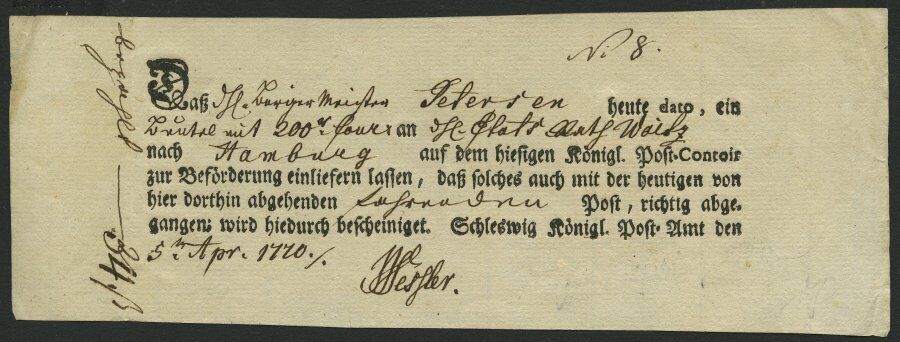 No. 8.
Daß dH. Bürger Meister Petersen heute dato, ein
Beutel mit 200 rt. Cour: an dH. Etats Rath Waitz
nach Hamburg auf dem hiesigen Königl. Post-Contoir
zur Beförderung einliefern lassen, daß solches auch mit der heutigen von
hier dorthin abgehenden fahrenden Post, richtig abge-
gangen: wird hiedurch bescheiniget. Schleswig Königl. Post-Amt den
5ten Apr. 1770./.
Wessler.
bezahlt — 34 ß